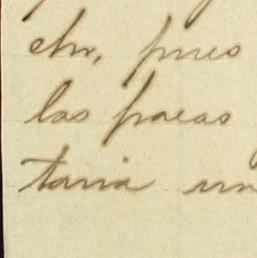 etr, pues
las pocas
taria un